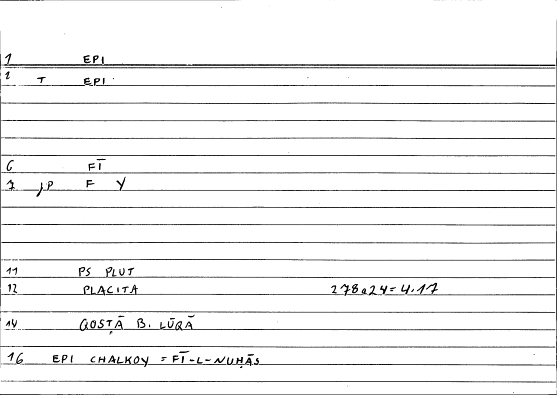 1 EPI
2 T EPI
6 FĪ
7 JP F Y
11 PS PLUT
12 PLACITA 278a24=4.17
14 QOSṬĀ B. LŪQĀ
16 EPI CHALKOY = FĪ-L-NUḤĀS